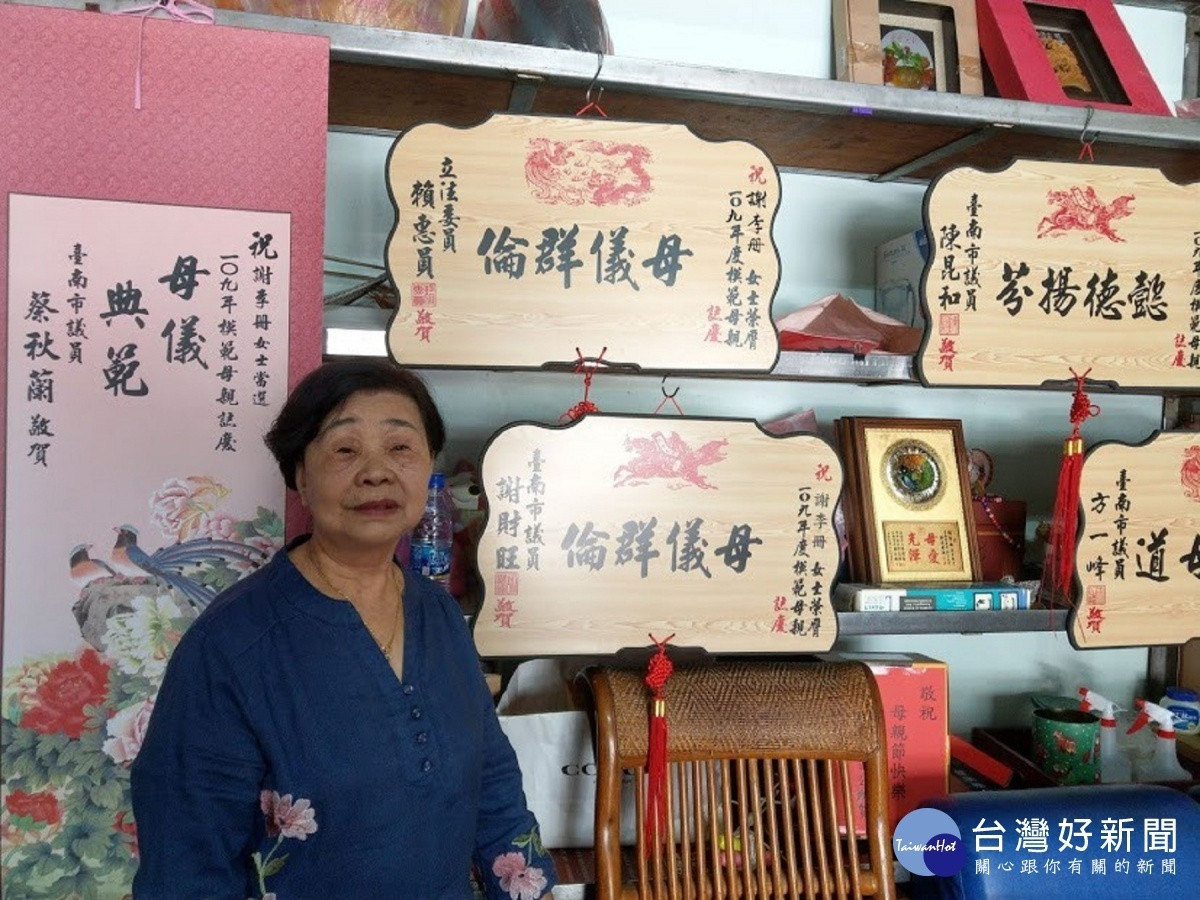 祝 謝李冊女士當選
一〇九年模範母親誌慶
母儀
典範
臺南市議員
蔡秋蘭 敬賀
祝 謝李冊 女士榮膺
一〇九年度模範母親
誌慶
母儀群倫
立法委員
賴惠員
敬賀
懿德揚芬
誌慶
臺南市議員
陳昆和
敬賀
祝 謝李冊 女士榮膺
一〇九年度模範母親
誌慶
母儀群倫
臺南市議員
謝財旺
敬賀
母愛
光輝
道
臺南市議員
方一峰
敬賀
敬祝
母親節快樂
TaiwanHot
台灣好新聞
關心跟你有關的新聞